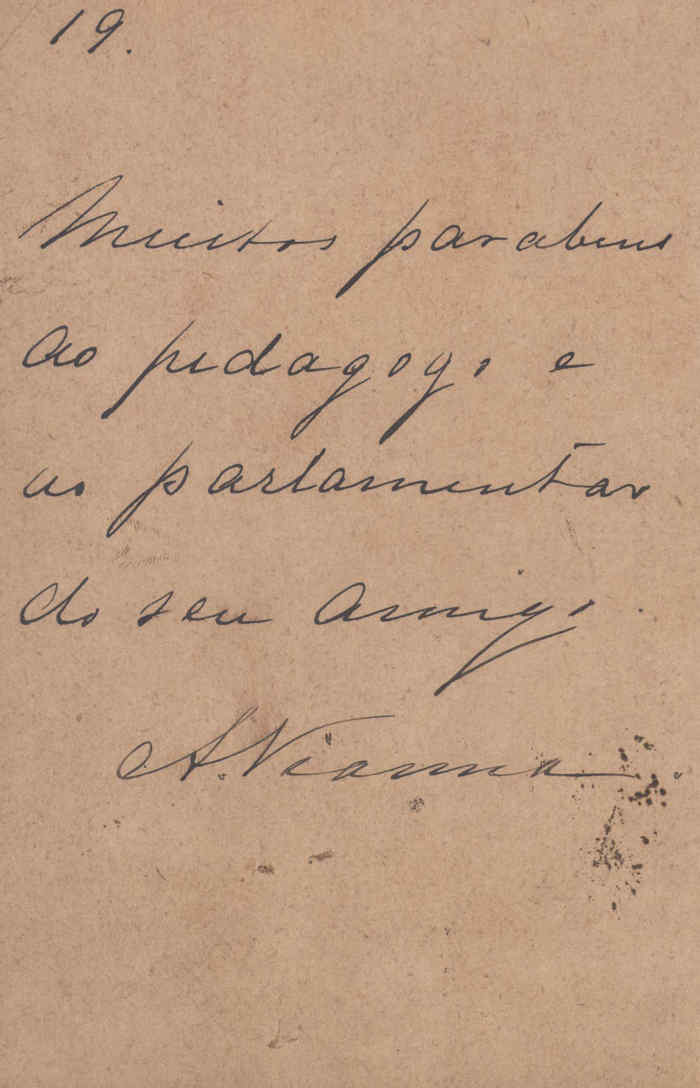 19.
Muitos parabens
ao pedagogo e
ao parlamentar
do seu amigo.
A. Vianna